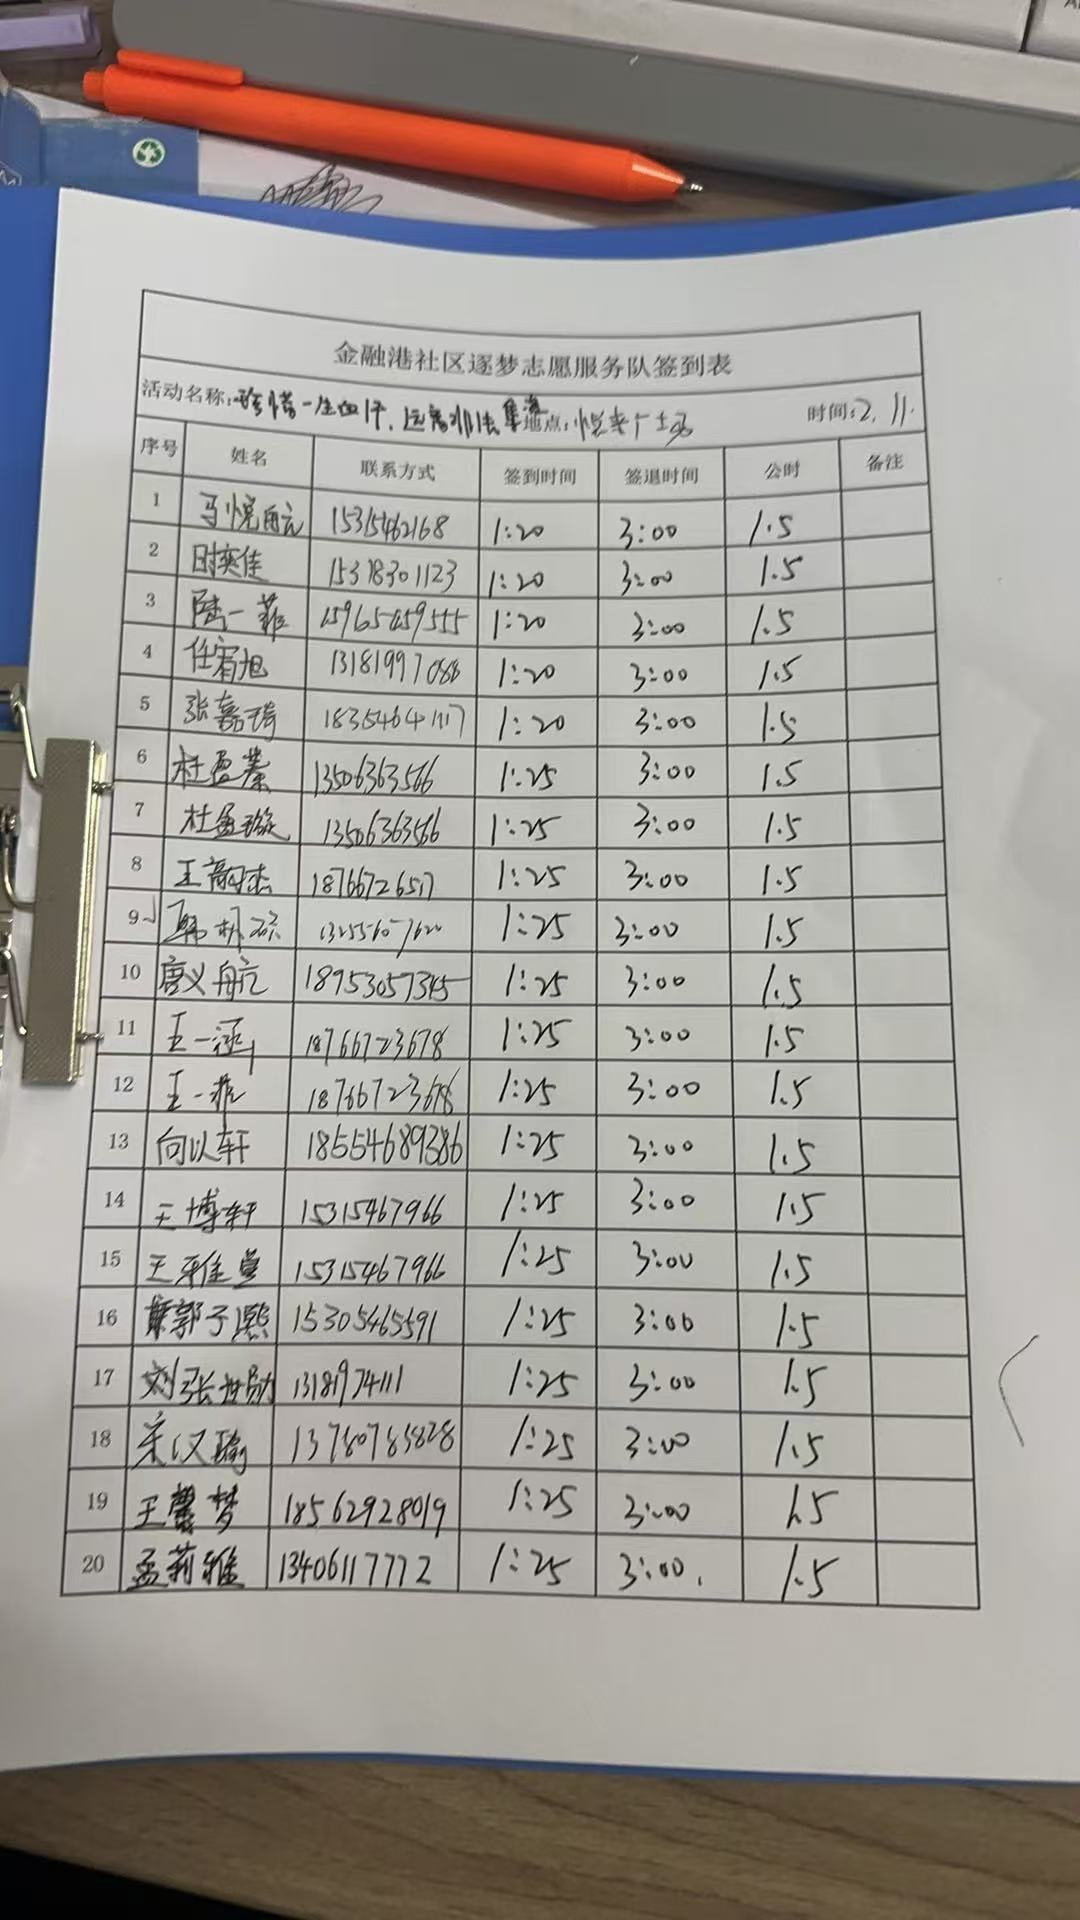 金融港社区逐梦志愿服务队签到表
活动名称:珍惜一生血汗,远离非法集资 地点:悦来广场 时间:2.11.
序号 姓名 联系方式 签到时间 签退时间 公时 备注
1 马悦航 15315462168 1:20 3:00 1.5
2 时奕佳 15318301123 1:20 3:00 1.5
3 陆一菲 15965459555 1:20 3:00 1.5
4 任宥旭 13181997088 1:20 3:00 1.5
5 张嘉琦 18354641117 1:20 3:00 1.5
6 杜盈蓁 13506363566 1:25 3:00 1.5
7 杜盈璇 13506363566 1:25 3:00 1.5
8 王 18766726517 1:25 3:00 1.5
9 韩 13255607620 1:25 3:00 1.5
10 唐义航 18953057345 1:25 3:00 1.5
11 王一涵 18766723678 1:25 3:00 1.5
12 王一菲 18766723678 1:25 3:00 1.5
13 向以轩 18554689386 1:25 3:00 1.5
14 王博轩 15315467966 1:25 3:00 1.5
15 王雅萱 15315467966 1:25 3:00 1.5
16 郭子熙 15305465591 1:25 3:00 1.5
17 刘张世勋 1318974111 1:25 3:00 1.5
18 宋汉瑜 13780783828 1:25 3:00 1.5
19 王馨梦 18562928019 1:25 3:00 1.5
20 孟莉雅 13406117772 1:25 3:00. 1.5